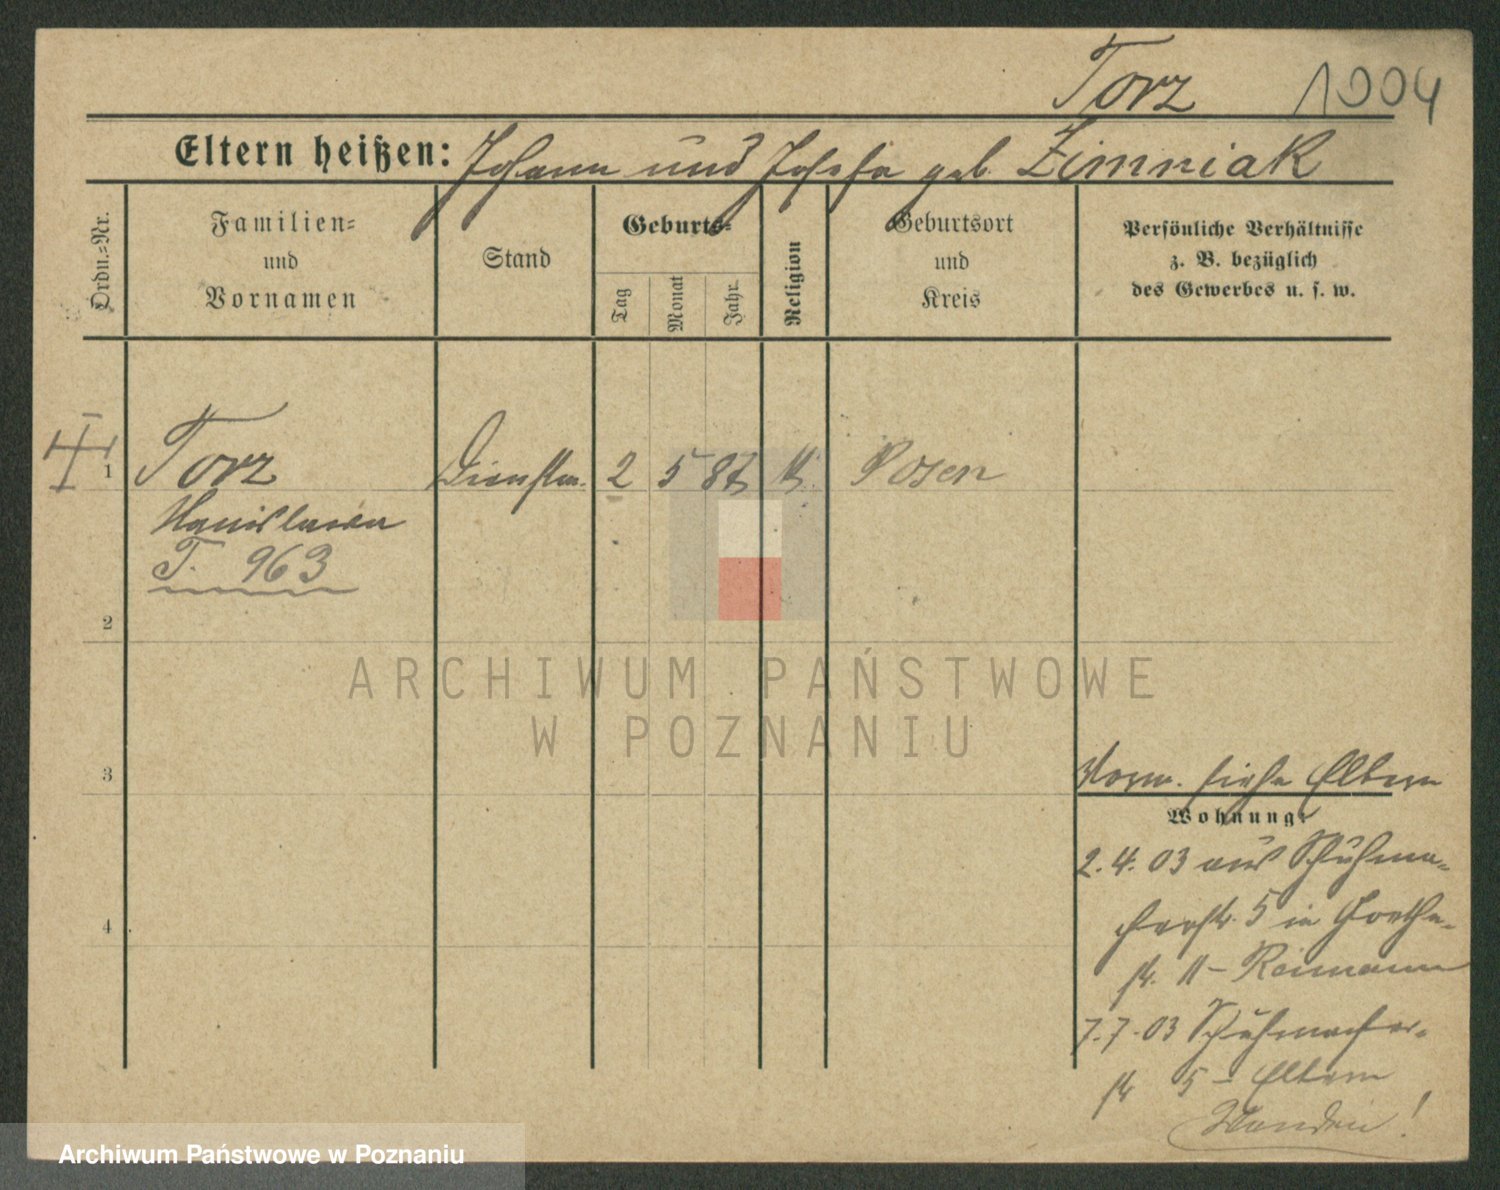 Torz 1004
Eltern heißen: Johann und Josefa geb. Zimniak
Ordn.-Nr.
Familien-
und
Vornamen
Stand
Geburts-
Tag
Monat
Jahr
Religion
Geburtsort
und
Kreis
Persönliche Verhältnisse
z. B. bezüglich
des Gewerbes u. s. w.
1 Torz Dienstm. 2 5 87 k. Posen
Stanislawa
T. 963
2
ARCHIWUM PAŃSTWOWE
W POZNANIU
3
Vorm. siehe Eltern
Wohnung:
2.4.03 aus Schuhma-
cherstr. 5 in Goethe-
str. 11 - Reimann
7.7.03 Schuhmacher-
str 5 - Eltern
4
Archiwum Państwowe w Poznaniu